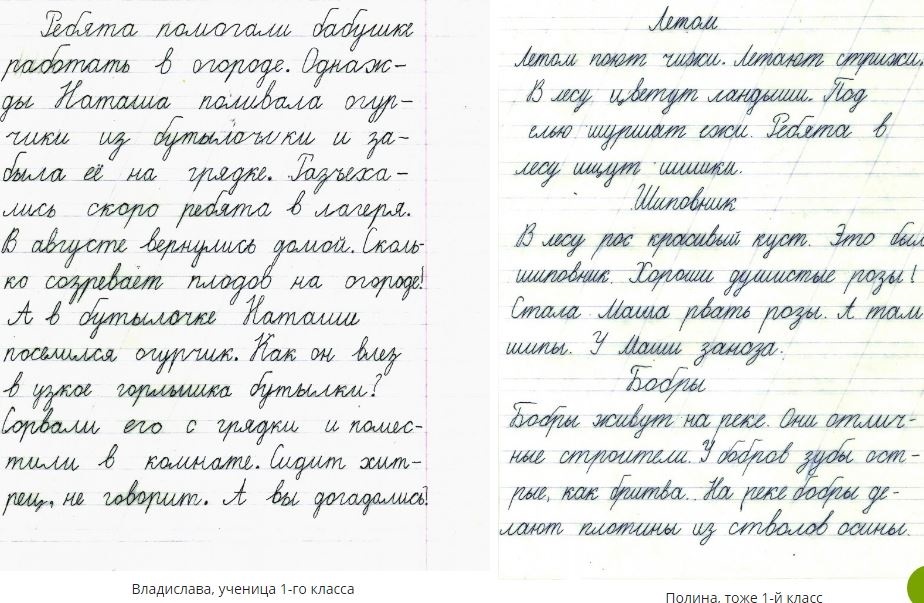 Ребята помогали бабушке
работать в огороде. Однаж-
ды Наташа поливала огур-
чики из бутылочки и за-
была её на грядке. Разъеха-
лись скоро ребята в лагеря.
В августе вернулись домой. Сколь-
ко созревает плодов на огороде!
А в бутылочке Наташи
поселился огурчик. Как он влез
в узкое горлышка бутылки?
Сорвали его с грядки и помес-
тили в комнате. Сидит хит-
рец, не говорит. А вы догадались?
Владислава, ученица 1-го класса
Летом
Летом поют чижи. Летают стрижи.
В лесу цветут ландыши. Под
елью шуршат ежи. Ребята в
лесу ищут шишки.
Шиповник
В лесу рос красивый куст. Это был
шиповник. Хороши душистые розы!
Стала Маша рвать розы. А там
шипы. У Маши заноза.
Бобры
Бобры живут на реке. Они отлич-
ные строители. У бобров зубы ост-
рые, как бритва. На реке бобры де-
лают плотины из стволов осины.
Полина, тоже 1-й класс